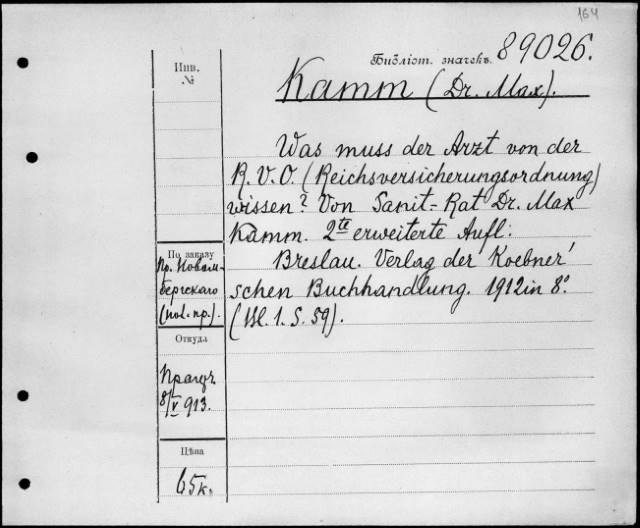 164
Библіот. значекъ 89026.
Инв.
№
Kamm (Dr. Max).
Was muss der Arzt von der
R.V.O. (Reichsversicherungsordnung)
wissen? Von Sanit-Rat Dr. Max
Kamm. 2te erweiterte Aufl.
Breslau. Verlag der Koebner'
schen Buchhandlung. 1912 in 8º.
(Bl. 1. S. 59).
По заказу
Пр. Новом-
бергскаго
(пол. пр.).
Откуда
Прагеръ
8/V 913.
Цѣна
65к.